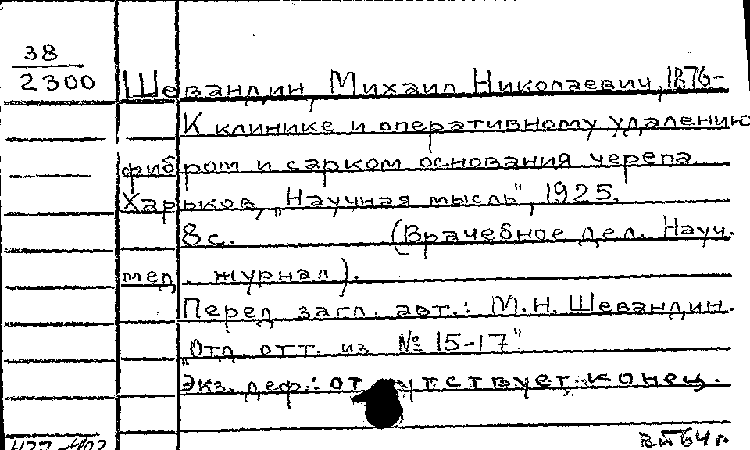 38
2300
Шевандин, Михаил Николаевич, 1876-
К клинике и оперативному удалению
фибром и сарком основания черепа
Харьков, "Научная мысль", 1925.
8 с. (Врачебное дел. Науч.
мед. журнал).
Перед загл. авт.: М.Н. Шевандин.
"Отд. отт. из № 15-17"
Экз. деф.: отсутствует конец.
64 г.